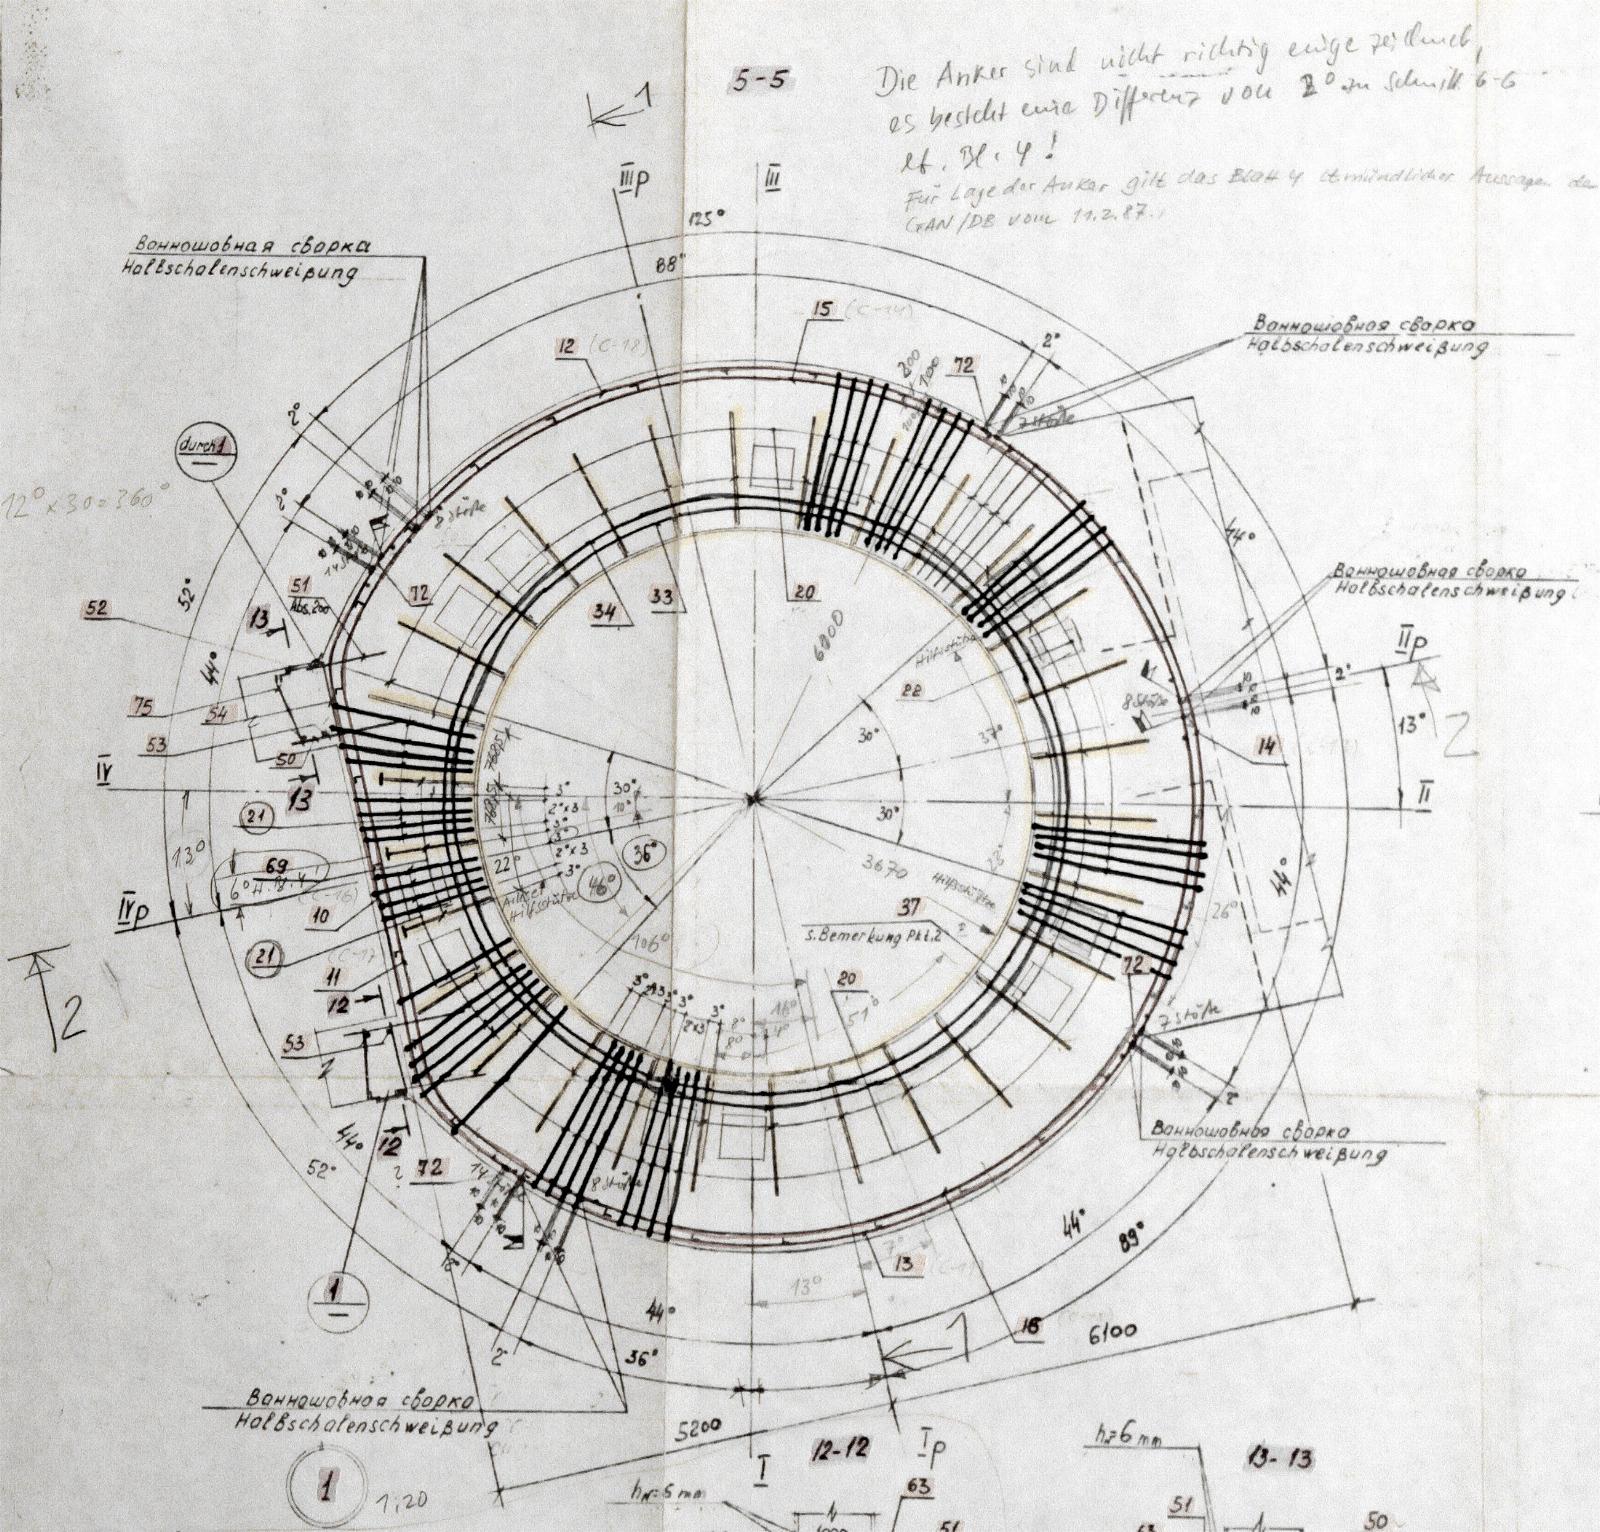 5-5
Die Anker sind nicht richtig eingezeichnet,
es besteht eine Differenz von 2° zu Schnitt 6-6
lt. Bl. 4!
Für Lage der Anker gilt das Blatt 4 lt. mündlicher Aussagen
GAN/DB vom 11.2.87.
1
IIIp
III
125°
88°
Ванношовная сварка
Halbschalenschweißung
15 (C-14)
12 (C-18)
200
100
72
2°
Ванношовная сварка
Halbschalenschweißung
7 Stöße
2°
durch 1
12° x 30 = 360°
8 Stöße
2°
44°
52°
51
Abs. 200
72
34
33
20
6900
Ванношовная сварка
Halbschalenschweißung
52
13
44°
Hilfsstütze
22
IIp
2°
8 Stöße
13°
2
75
54
53
50
14
37°
30°
IV
13
7685
7685
30°
10°
3°
2°x3
3°
3°
2°x3
3°
II
21
30°
13°
69
6° lt. Bl. 4!
22°
36°
46°
3670
28°
Hilfsstütze
44°
IVp
10
Hilfsstütze
37
s. Bemerkung Pkt. 2
26°
21
11
106°
72
12
20
2
53
3°
3°
3°
2x3
3°
8°
16°
51°
7 Stöße
2°
44°
12
52°
72
Ванношовная сварка
Halbschalenschweißung
8 Stöße
44°
89°
7°
13
13°
1
44°
16
6100
1
2°
36°
Ванношовная сварка
Halbschalenschweißung
5200
I
Ip
12-12
13-13
h=6 mm
1
1:20
h=6 mm
63
51
51
50